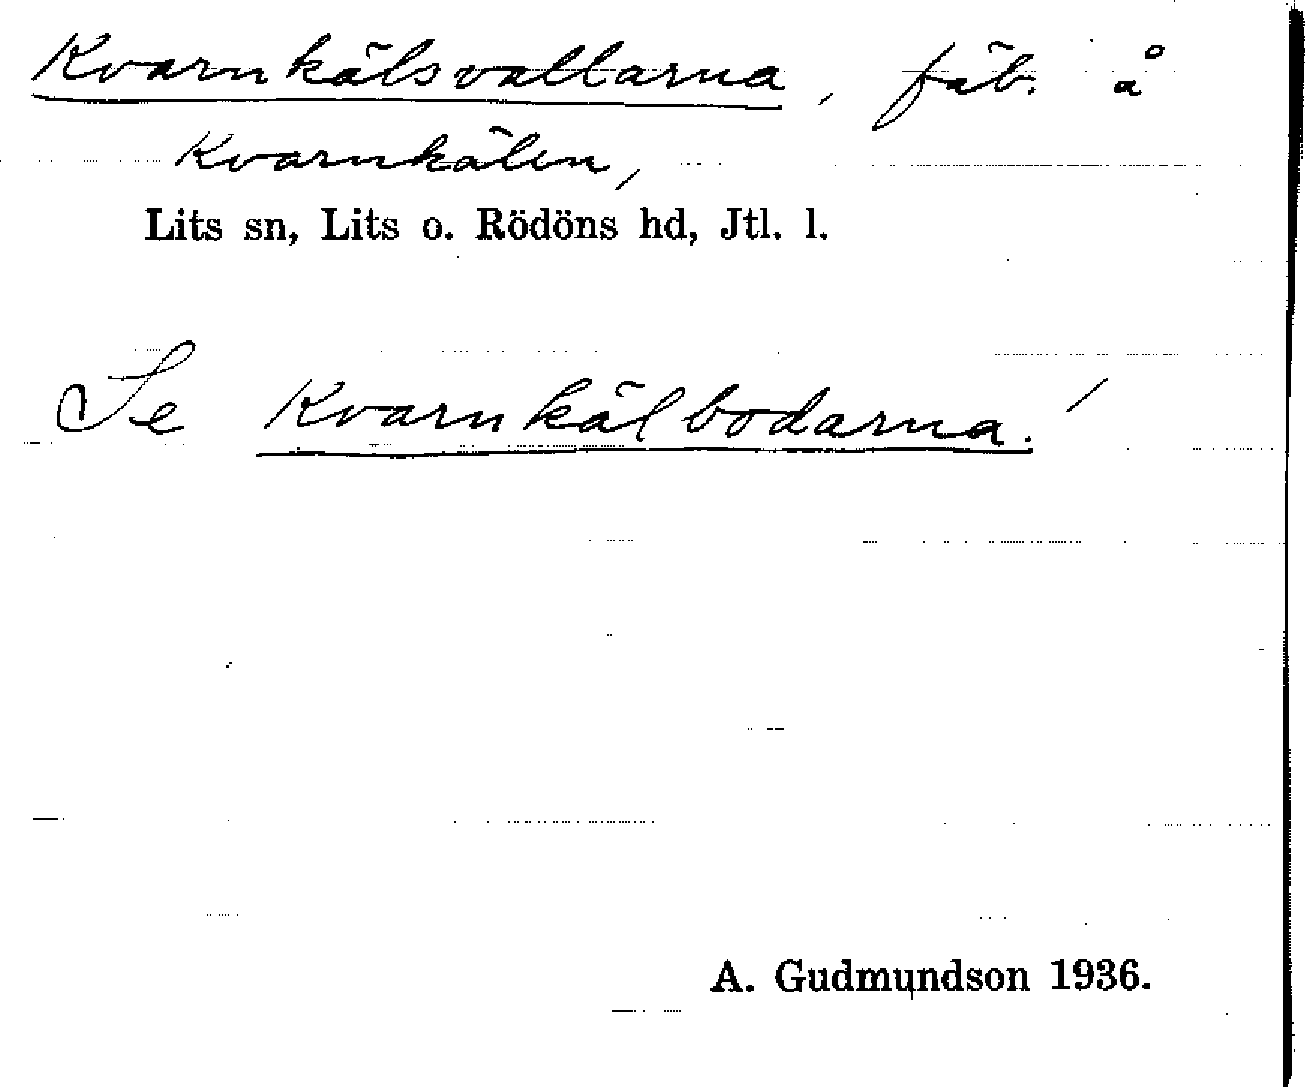 Kvarnkälsvallarna, fäb. å
Kvarnkälen,
Lits sn, Lits o. Rödöns hd, Jtl. l.
Se Kvarnkälbodarna!
A. Gudmundson 1936.